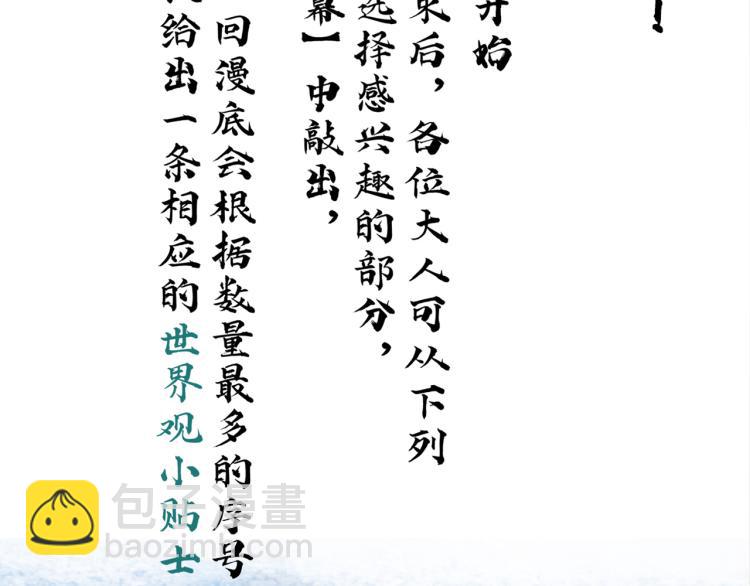 ！
开始
束后，各位大人可从下列
选择感兴趣的部分，
幕】中敲出，
回漫底会根据数量最多的序号
给出一条相应的世界观小贴士
包子漫畫
baozimh.com